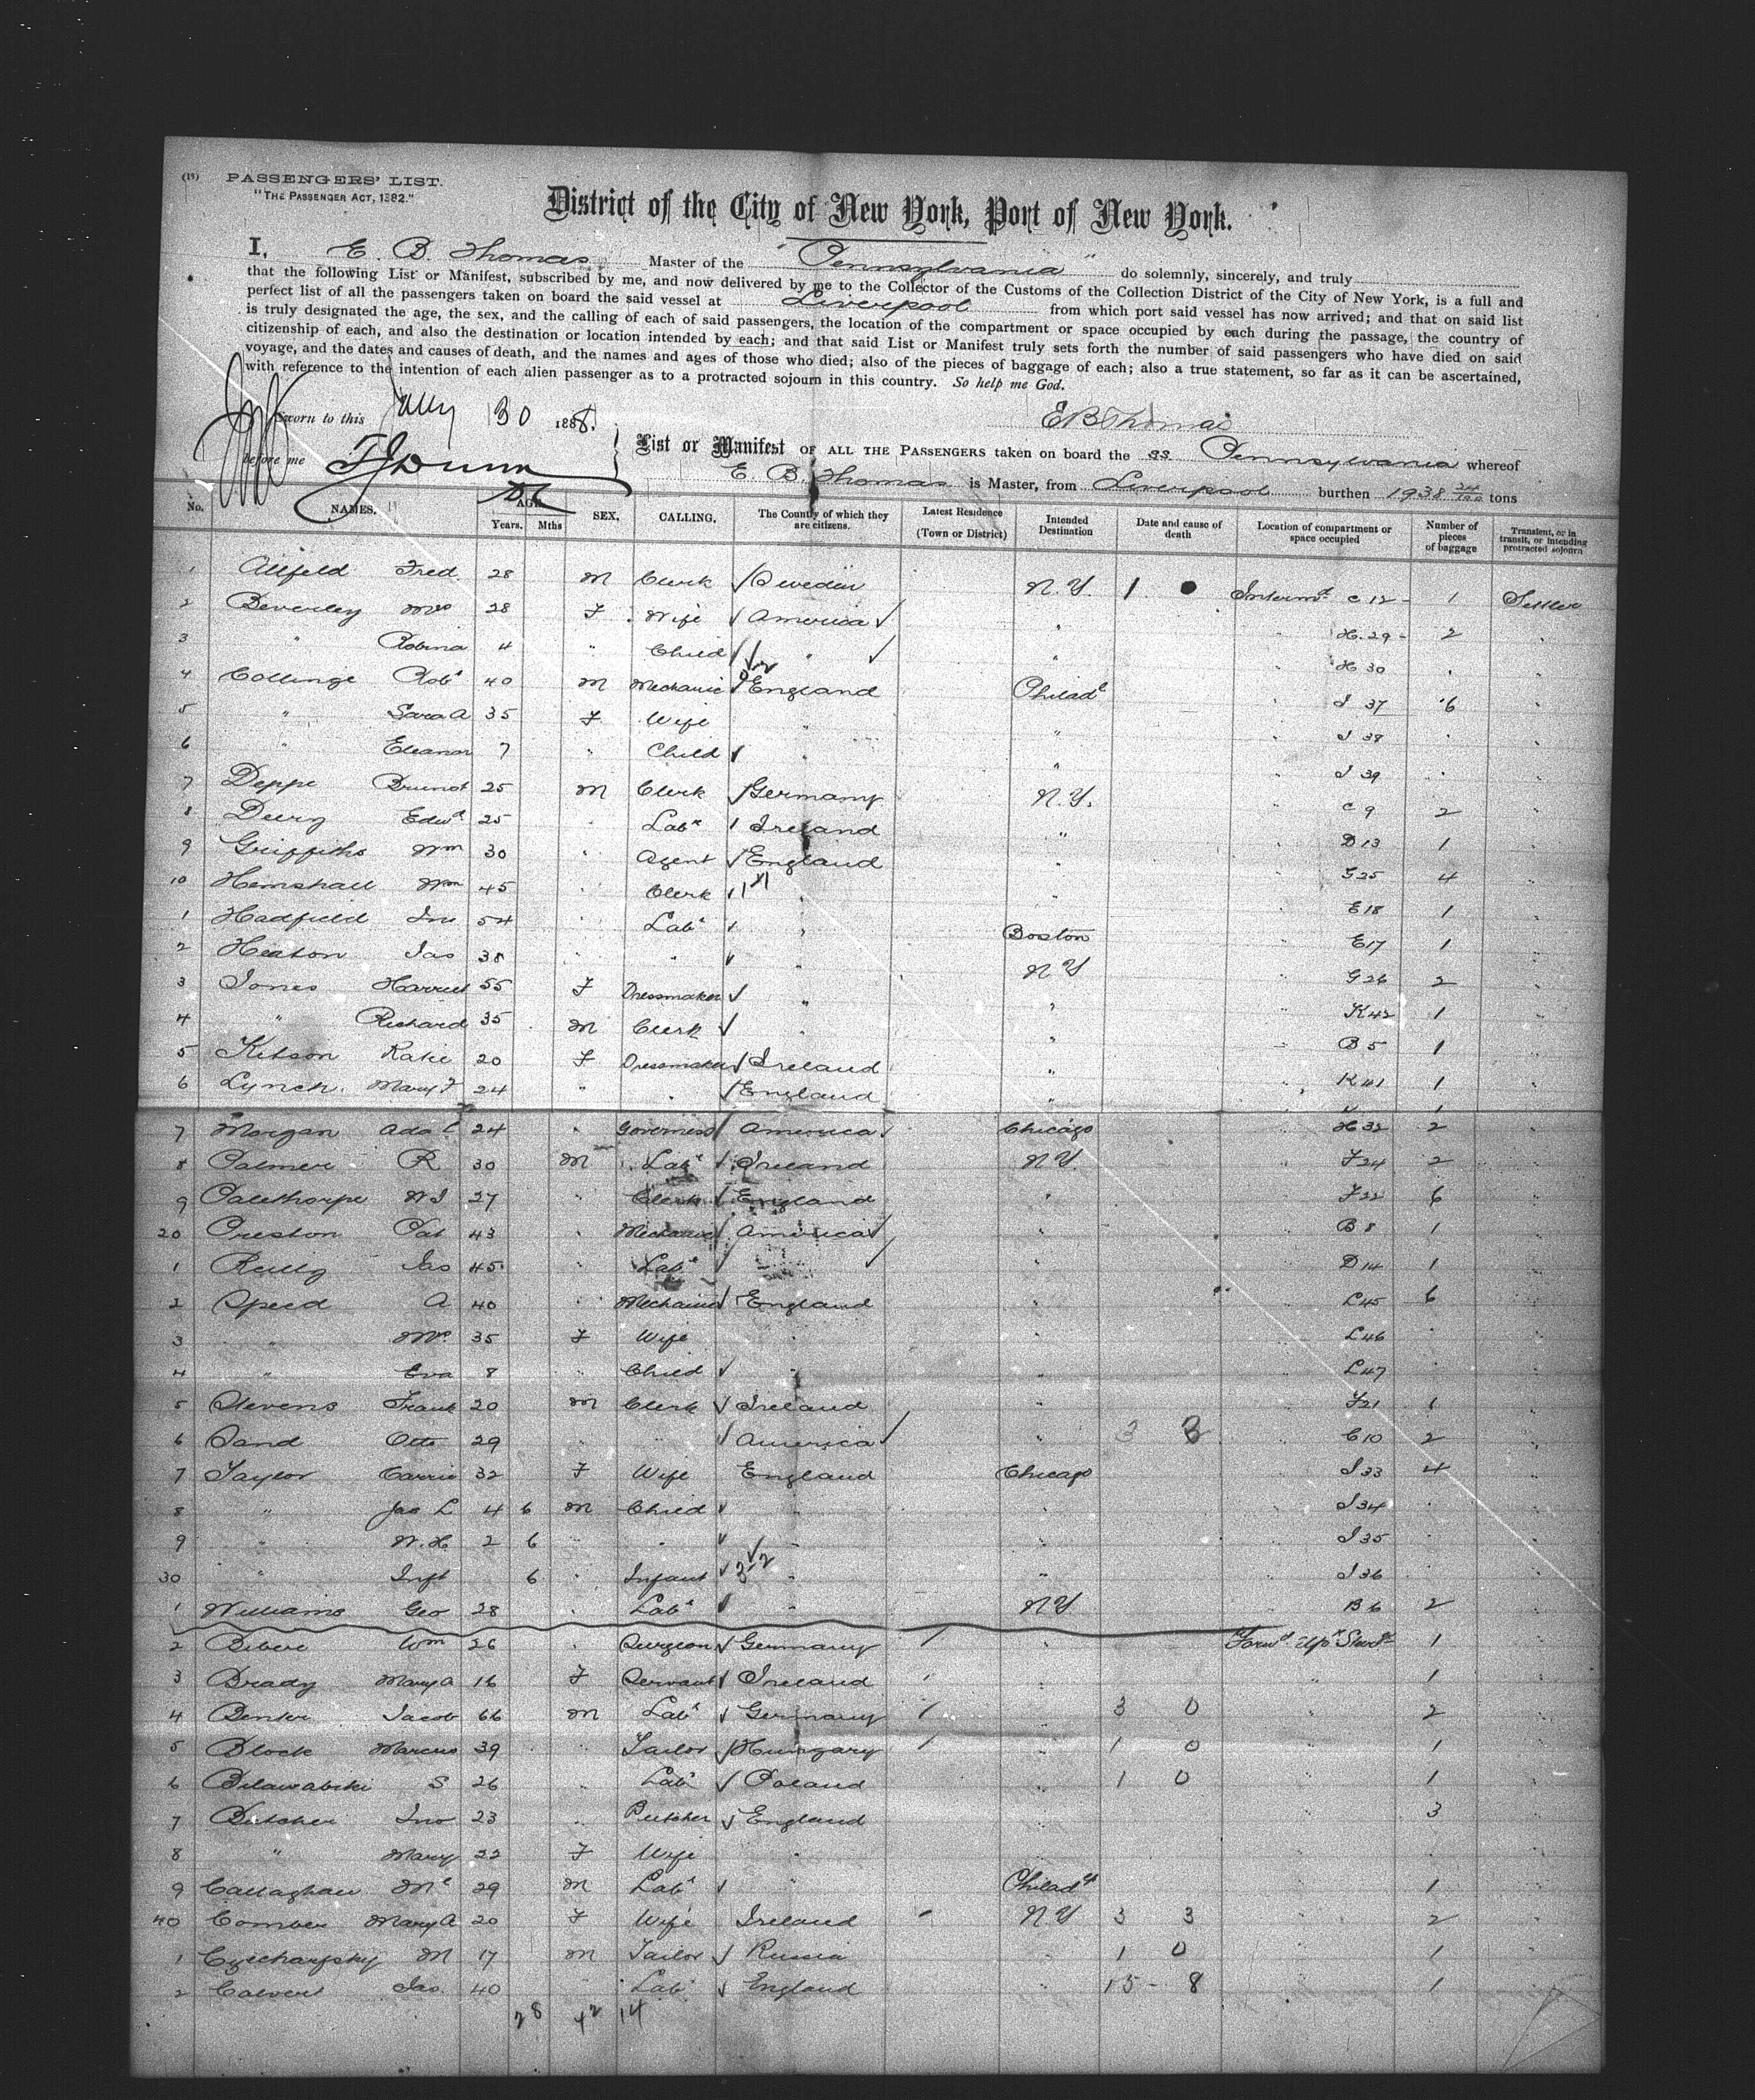 (15) PASSENGERS' LIST.
"THE PASSENGER ACT, 1882."
District of the City of New York, Port of New York.
I, E. B. Thomas Master of the "Pennsylvania" do solemnly, sincerely, and truly
that the following List or Manifest, subscribed by me, and now delivered by me to the Collector of the Customs of the Collection District of the City of New York, is a full and
perfect list of all the passengers taken on board the said vessel at Liverpool from which port said vessel has now arrived; and that on said list
is truly designated the age, the sex, and the calling of each of said passengers, the location of the compartment or space occupied by each during the passage, the country of
citizenship of each, and also the destination or location intended by each; and that said List or Manifest truly sets forth the number of said passengers who have died on said
voyage, and the dates and causes of death, and the names and ages of those who died; also of the pieces of baggage of each; also a true statement, so far as it can be ascertained,
with reference to the intention of each alien passenger as to a protracted sojourn in this country. So help me God.
Sworn to this 30 1888. E B Thomas
before me
List or Manifest OF ALL THE PASSENGERS taken on board the SS. Pennsylvania whereof
E. B. Thomas is Master, from Liverpool burthen 1938 24/100 tons
No. NAMES. AGE. Years. Mths SEX. CALLING. The County of which they are citizens. Latest Residence (Town or District) Intended Destination Date and cause of death Location of compartment or space occupied Number of pieces of baggage Transient, or in transit, or intending protracted sojourn
1 Allfeld Fred. 28 M Clerk Sweden N.Y. 1 Intermt C 12 1 Settler
2 Beverley Mrs 28 F Wife America " H. 29 2 "
3 " Robina 4 " Child " " H 30 " "
4 Collinge Robt 40 M Mechanic England Philada J 37 6 "
5 " Sara A 35 F Wife " " J 38 " "
6 " Eleanor 7 " Child " " J 39 " "
7 Deppe 25 M Clerk Germany N.Y. C 9 2 "
8 Deery Edwd 25 " Labr Ireland " D 13 1 "
9 Griffiths Wm 30 " Agent England " G25 4 "
10 Henshall Wm 45 " Clerk " " E18 1 "
1 Hadfield Jno 54 " Labr " Boston E17 1 "
2 Heaton Jas 38 " " " N Y G26 2 "
3 Jones Harriet 55 F Dressmaker " " K42 1 "
4 " Richard 35 M Clerk " " B 5 1 "
5 Kitson Katie 20 F Dressmaker Ireland " K41 1 "
6 Lynch Mary F 24 " " England "
7 Morgan Ada C 24 " Governess America Chicago H 32 2 "
8 Palmer R 30 M Labr Ireland N Y F24 2 "
9 Palethorpe W J 27 " Clerk England " F22 6 "
20 Preston Pat 43 " Mechanic America " B 8 1 "
1 Reilly Jas 45 " Labr " " D 14 1 "
2 Speed A 40 " Mechanic England " L45 6 "
3 " Mrs 35 F Wife " " L46 " "
4 " Eva 8 " Child " " L47 " "
5 Stevens Frank 20 M Clerk Ireland " F21 1 "
6 Sand Otto 29 " " America " 3 3 C10 2 "
7 Taylor Carrie 32 F Wife England Chicago J33 4 "
8 " Jas L 4 6 M Child " " J34 " "
9 " W. H. 2 6 " " " " J35 " "
30 " Inft 6 " Infant " " J36 " "
1 Williams Geo 28 " Labr " N Y B 6 2 "
2 Wm 26 " Surgeon Germany " Forwd Upr 1 "
3 Brady Mary A 16 F Servant Ireland " 1 "
4 Jacob 66 M Labr Germany " 3 0 " 2 "
5 Block Marcus 39 " Tailor Hungary " 1 0 " 1 "
6 S 26 " Labr Poland " 1 0 " 1 "
7 Butcher Jno 23 " Butcher England " " 3 "
8 " Mary 22 F Wife " " " "
9 Callaghan 29 M Labr " Philada 1 "
40 Comber Mary A 20 F Wife Ireland N Y 3 3 " 2 "
1 M 17 M Tailor Russia " 1 0 " 1 "
2 Calvert Jas 40 " Labr England " 15 - 8 " 1 "
28 42 14